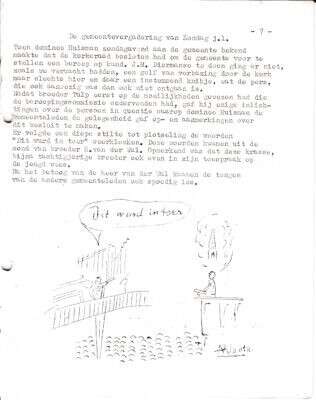 - 7 -
De gemeentevergadering van Zondag j.l.
Toen dominee Huisman zondagavond aan de gemeente bekend
maakte dat de kerkeraad besloten had om de gemeente voor te
stellen een beroep op bond. J.H. Biermanse te doen ging er niet,
zoals we verwacht hadden, een golf van verbazing door de kerk
maar slechts hier en daar een instemmend knikje, wat de pers,
die ook aanwezig was dan ook niet ontgaan is.
Nadat broeder Tulp eerst op de moeilijkheden gewezen had die
de beroepingscommissie ondervonden had, gaf hij enige inlich-
tingen over de persoon in questie waarop dominee Huisman de
gemeenteleden de gelegenheid gaf op- en aanmerkingen over
dit besluit te maken.
Er volgde een diepe stilte tot plotseling de woorden
"Dit word in toer" weerklonken. Deze woorden kwamen uit de
mond van broeder H.van der Wal. Opmerkend was dat deze krasse,
bijna tachtigjarige broeder ook even in zijn toespraak op
de jeugd wees.
Na het betoog van de heer van der Wal kwamen de tongen
van de andere gemeenteleden ook spoedig los.
Dit word in toer